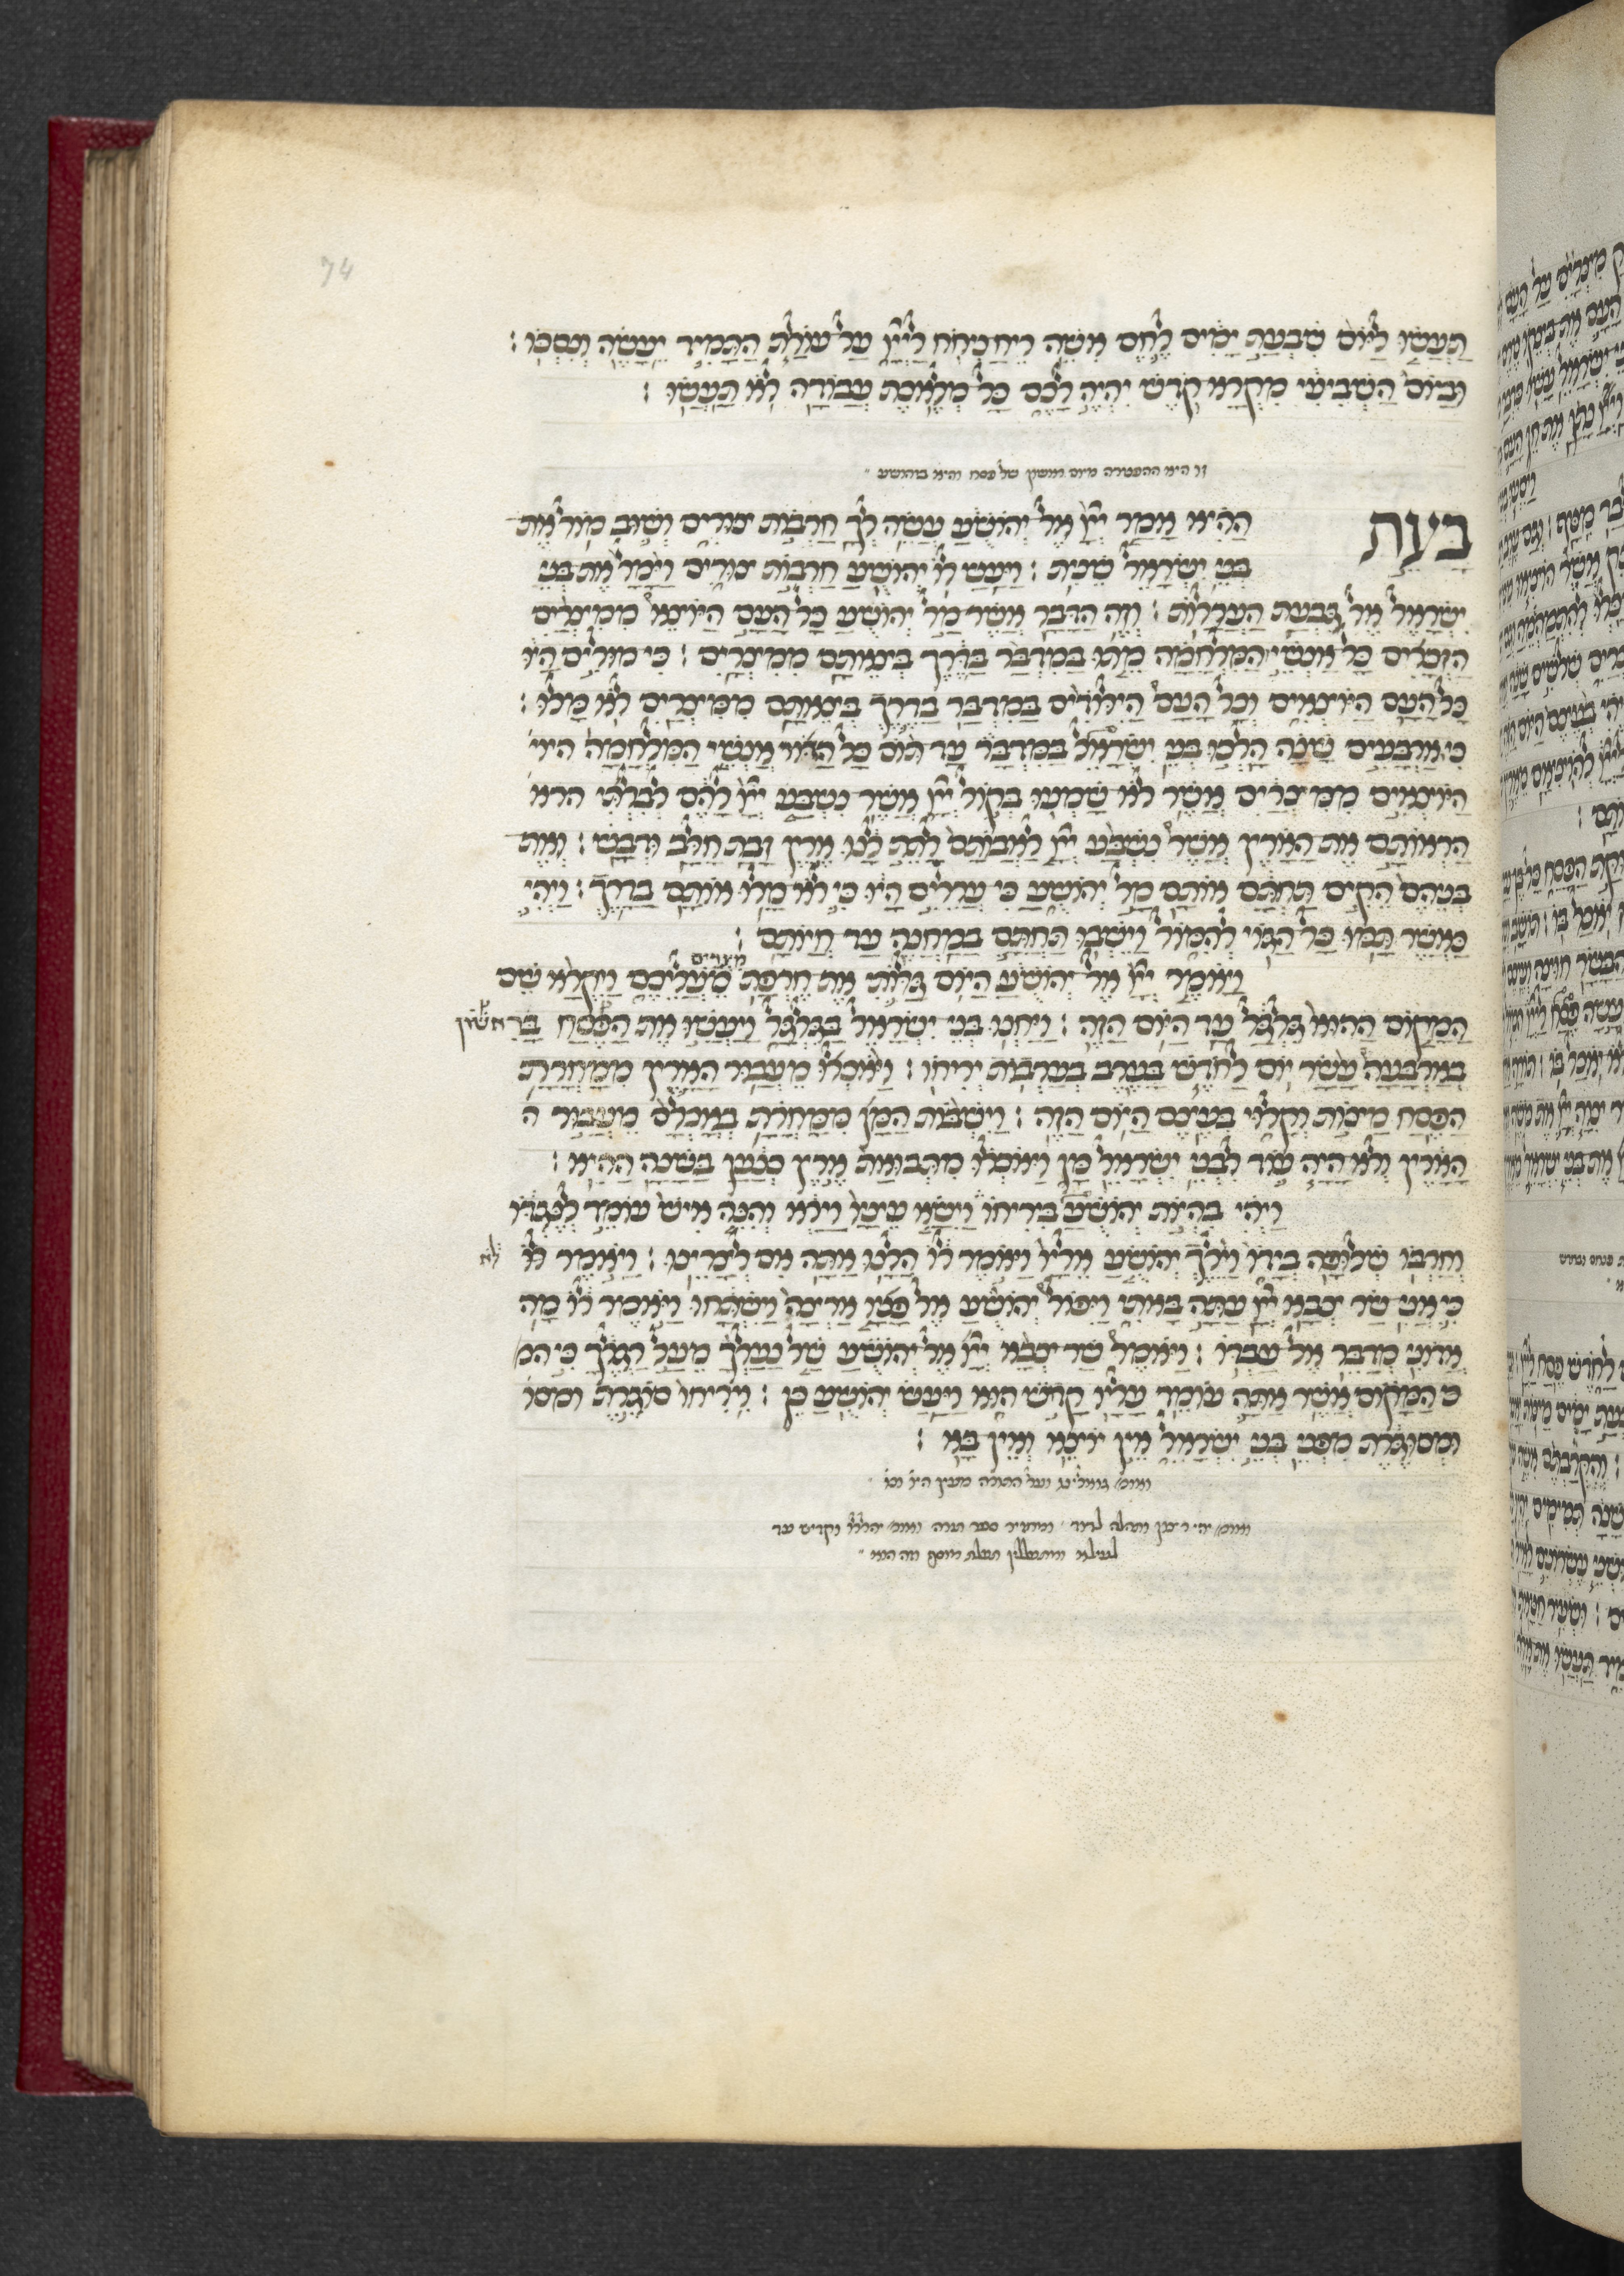 74
תַּעֲשׂוּ לַיּוֹם שִׁבְעַת יָמִים לֶחֶם אִשֵּׁה רֵיחַ נִיחֹחַ לַייָ עַל עוֹלַת הַתָּמִיד יֵעָשֶׂה וְנִסְכּוֹ׃
וּבַיּוֹם הַשְּׁבִיעִי מִקְרָא קֹדֶשׁ יִהְיֶה לָכֶם כָּל מְלֶאכֶת עֲבוֹדָה לֹא תַעֲשׂוּ׃
זו היא ההפטרה מיום ראשון של פסח והיא ביהושע
בָּעֵת הַהִיא אָמַר ייָ אֶל יְהוֹשֻׁעַ עֲשֵׂה לְךָ חַרְבוֹת צוּרִים וְשׁוּב מוֹל אֶת
בְּנֵי יִשְׂרָאֵל שֵׁנִית׃ וַיַּעַשׂ לוֹ יְהוֹשֻׁעַ חַרְבוֹת צוּרִים וַיָּמָל אֶת בְּנֵי
יִשְׂרָאֵל אֶל גִּבְעַת הָעֲרָלוֹת׃ וְזֶה הַדָּבָר אֲשֶׁר מָל יְהוֹשֻׁעַ כָּל הָעָם הַיּוֹצֵא מִמִּצְרַיִם
הַזְּכָרִים כָּל אַנְשֵׁי הַמִּלְחָמָה מֵתוּ בַמִּדְבָּר בַּדֶּרֶךְ בְּצֵאתָם מִמִּצְרָיִם׃ כִּי מוּלִים הָיוּ
כָּל הָעָם הַיּוֹצְאִים וְכָל הָעָם הַיִּלּוֹדִים בַּמִּדְבָּר בַּדֶּרֶךְ בְּצֵאתָם מִמִּצְרַיִם לֹא מָלוּ׃
כִּי אַרְבָּעִים שָׁנָה הָלְכוּ בְנֵי יִשְׂרָאֵל בַּמִּדְבָּר עַד תּוֹם כָּל הַדּוֹר אַנְשֵׁי הַמִּלְחָמָה היוי
הַיּוֹצְאִים מִמִּצְרַיִם אֲשֶׁר לֹא שָׁמְעוּ בְּקוֹל ייָ אֲשֶׁר נִשְׁבַּע ייָ לָהֶם לְבִלְתִּי הרא
הַרְאוֹתָם אֶת הָאָרֶץ אֲשֶׁר נִשְׁבַּע ייָ לַאֲבוֹתָם לָתֶת לָנוּ אֶרֶץ זָבַת חָלָב וּדְבָשׁ׃ וְאֶת
בְּנֵיהֶם הֵקִים תַּחְתָּם אוֹתָם מָל יְהוֹשֻׁעַ כִּי עֲרֵלִים הָיוּ כִּי לֹא מָלוּ אוֹתָם בַּדָּרֶךְ׃ וַיְהִי
כַּאֲשֶׁר תַּמּוּ כָל הַגּוֹי לְהִמּוֹל וַיֵּשְׁבוּ תַחְתָּם בַּמַּחֲנֶה עַד חֲיוֹתָם׃
מצרים
וַיֹּאמֶר ייָ אֶל יְהוֹשֻׁעַ הַיּוֹם גַּלּוֹתִי אֶת חֶרְפַּת מֵעֲלֵיכֶם וַיִּקְרָא שֵׁם
הַמָּקוֹם הַהוּא גִּלְגָּל עַד הַיּוֹם הַזֶּה׃ וַיַּחֲנוּ בְנֵי יִשְׂרָאֵל בַּגִּלְגָּל וַיַּעֲשׂוּ אֶת הַפֶּסַח בָּרִאשׁוֹן
בְּאַרְבָּעָה עָשָׂר יוֹם לַחֹדֶשׁ בָּעֶרֶב בְּעַרְבוֹת יְרִיחוֹ׃ וַיֹּאכְלוּ מֵעֲבוּר הָאָרֶץ מִמָּחֳרַת
הַפֶּסַח מַצּוֹת וְקָלוּי בְּעֶצֶם הַיּוֹם הַזֶּה׃ וַיִּשְׁבּוֹת הַמָּן מִמָּחֳרָת בְּאָכְלָם מֵעֲבוּר ה
הָאָרֶץ וְלֹא הָיָה עוֹד לִבְנֵי יִשְׂרָאֵל מָן וַיֹּאכְלוּ מִתְּבוּאַת אֶרֶץ כְּנַעַן בַּשָּׁנָה הַהִיא׃
וַיְהִי בִּהְיוֹת יְהוֹשֻׁעַ בִּירִיחוֹ וַיִּשָּׂא עֵינָיו וַיַּרְא וְהִנֵּה אִישׁ עוֹמֵד לְנֶגְדּוֹ
וְחַרְבּוֹ שְׁלוּפָה בְּיָדוֹ וַיֵּלֶךְ יְהוֹשֻׁעַ אֵלָיו וַיֹּאמֶר לוֹ הֲלָנוּ אַתָּה אִם לְצָרֵינוּ׃ וַיֹּאמֶר לוֹ לא
כִּי אֲנִי שַׂר צְבָא ייָ עַתָּה בָאתִי וַיִּפּוֹל יְהוֹשֻׁעַ אֶל פָּנָיו אַרְצָה וַיִּשְׁתָּחוּ וַיֹּאמֶר לוֹ מָה
אֲדוֹנִי מְדַבֵּר אֶל עַבְדּוֹ׃ וַיֹּאמֶר שַׂר צְבָא ייָ אֶל יְהוֹשֻׁעַ שַׁל נַעַלְךָ מֵעַל רַגְלֶךָ כִּי המ
כִּי הַמָּקוֹם אֲשֶׁר אַתָּה עוֹמֵד עָלָיו קֹדֶשׁ הוּא וַיַּעַשׂ יְהוֹשֻׁעַ כֵּן׃ וִירִיחוֹ סוֹגֶרֶת ומסו
וּמְסוּגֶּרֶת מִפְּנֵי בְּנֵי יִשְׂרָאֵל אֵין יוֹצֵא וְאֵין בָּא׃
ואומ׳ גואלינו ועל התורה מעין היו׳ וכו׳
ואומ׳ יהי רצון ותהלה לדוד ומחזיר ספר תורה ואומ׳ יהללו וקדיש עד
לעילא ומתפללין תפלת מוסף וזה הוא